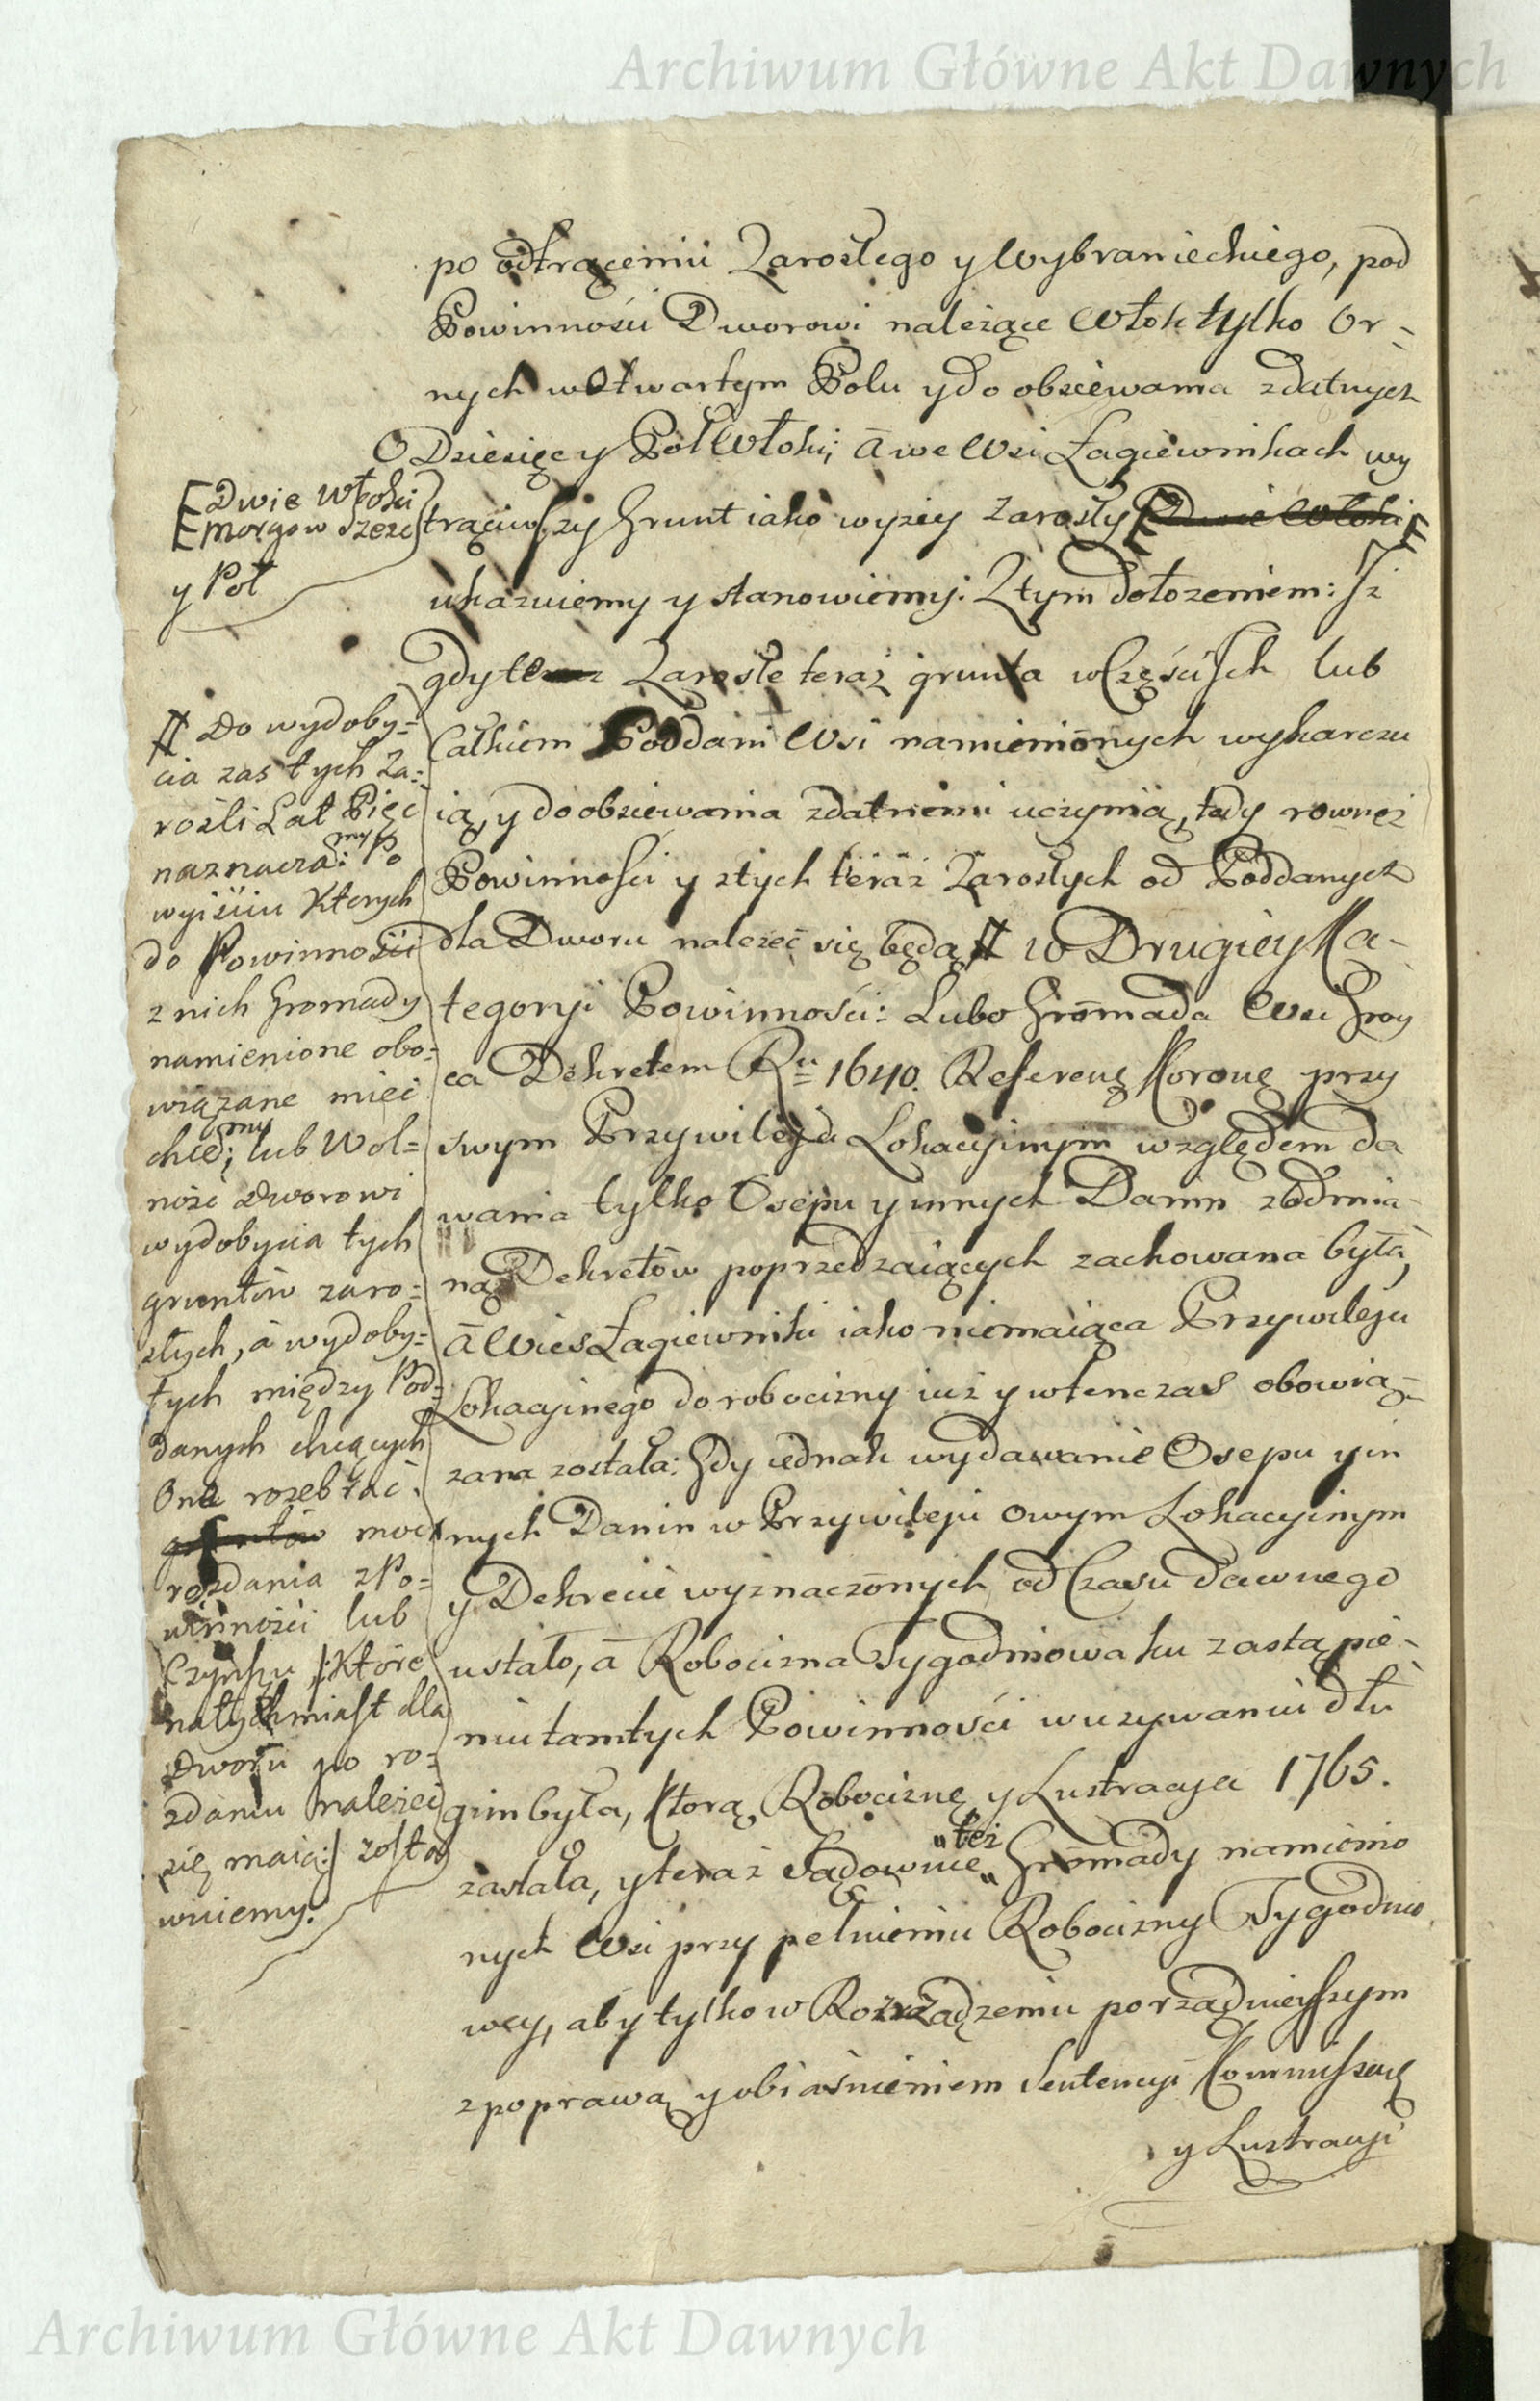 Archiwum Główne Akt Dawnych
po odtrąceniu Zarosłego y Wybranieckiego, pod
Powinności Dworowi należące Włok tylko Or-
nych w Otwartym Polu y do obsiewania zdatnych
O Dziesięc y Poł Włoki; à we Wsi Łagiewnikach wy
trąciwszy Grunt iako wyzey Zarosły Dwie Włoki
ukazuiemy y stanowiemy: Z tym dołozeniem: Iż
gdy te Zarosłe teraz grunta w Częściach lub
Całkiem Poddani Wsi namienionych wykarczu
ią, y do obsiewania zdatnemi uczynią, tedy rowneż
Powinności y z tych teraz Zarosłych od Poddanych
dla Dworu nalezeć się będą # w Drugiey Ka-
tegoryi Powinności: Lubo Gromada Wsi Groy
ca Dekretem Ru 1640. Referenż Koronż przy
swym Przywileju Lokacyinym względem da
wania tylko Osepu y innych Danin z odmia-
ną Dekretów poprzedzaiących zachowana była,
à Wies Łagiewniki iako niemaiąca Przywileju
Lokacyinego do robocizny iuż y wtenczas obowią-
zana została: Gdy iednak wydawanie Osepu y in
nych Danin w Przywileju owym Lokacyinym
y Dekrecie wyznaczonych od Czasu dawnego
ustało, à Robocizna Tygodniowa ku zastąpie-
niu tamtych Powinności w uzywaniu dłu
gim była, Ktorą Robociznę y Lustracya 1765.
zastała, y teraz Sądownie też Gromady namienio
nych Wsi przy pełnieniu Robocizny Tygodnio
wey, aby tylko w Rozrządzeniu porządnieyszym
z poprawą y obiaśnieniem Sentencyi Kommissarż
y Lustracyi
Dwie Włoki
morgow szesc
y Poł
# Do wydoby=
cia zas tych Za=
rosli Lat Pięć
naznacza:my Po
wyiściu Ktorych
do Powinności
z nich Gromady
namienione obo=
wiązane mieć
chce:my; lub Wol=
ność Dworowi
wydobycia tych
gruntów zaro=
słych, à wydoby=
tych między Pod=
danych chcących
One rozebrać
gruntów moc
rozdania z Po=
winności lub
Czynszu /:Które
natychmiast dla
Dworu po ro=
zdaniu należeć
się maią:/ zosta
wuiemy.
Archiwum Główne Akt Dawnych